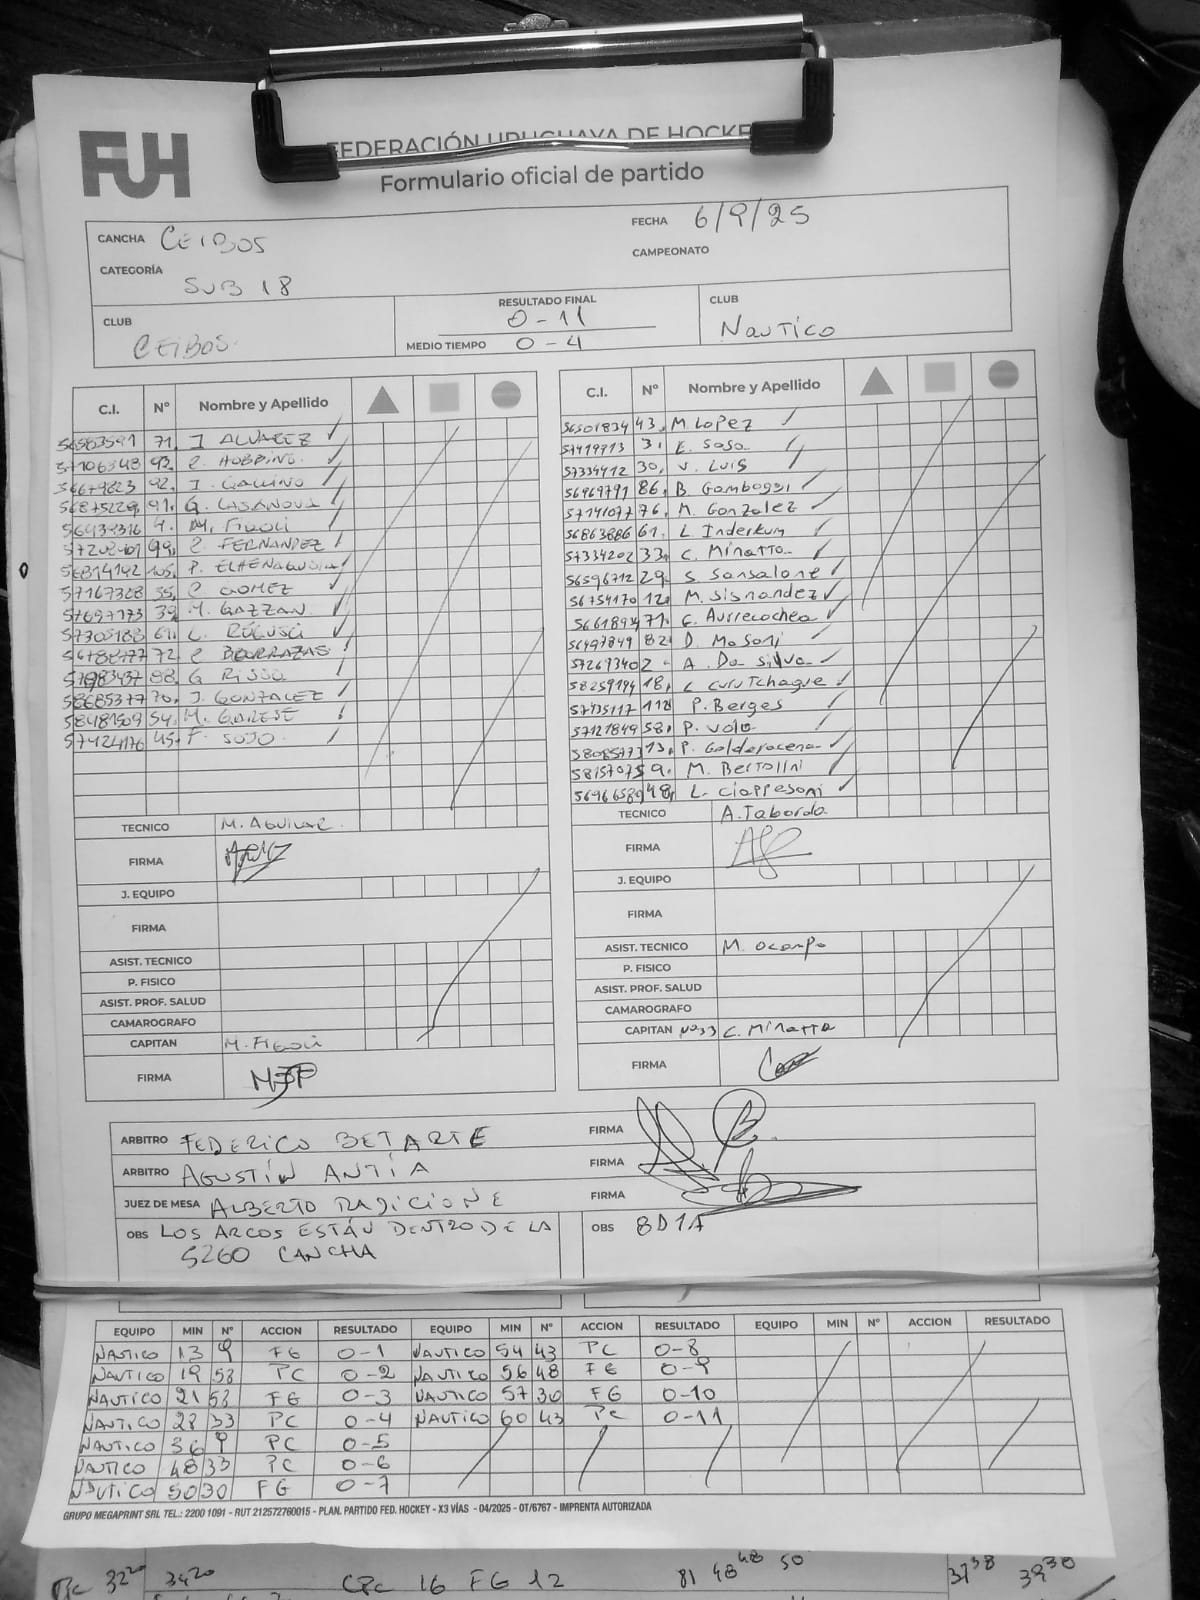 FUH
FEDERACIÓN URUGUAYA DE HOCKE
Formulario oficial de partido
CANCHA CEIBOS
FECHA 6/9/25
CATEGORÍA SUB 18
CAMPEONATO
CLUB CEIBOS
RESULTADO FINAL 0-11
MEDIO TIEMPO 0-4
CLUB NAUTICO
C.I. Nº Nombre y Apellido
56583591 71. I ALVAREZ
93. HOBBINS
56679823 92. I. GALLINO
56875229 91. G. CASANOVA
56439316 4. M. FIGOLI
99. FERNANDEZ
56814142 105. P.
57167328 55. GOMEZ
57697173 39 M. GAZZAN
57305188 61. L.
72.
88. G RISSO
58685377 70. J. GONZALEZ
58481509 54. M.
57424176 45. F. SOJO
TECNICO M. AGUILAR
FIRMA
J. EQUIPO
FIRMA
ASIST. TECNICO
P. FISICO
ASIST. PROF. SALUD
CAMAROGRAFO
CAPITAN M. FIGOLI
FIRMA
C.I. Nº Nombre y Apellido
56501834 43. M. Lopez
57419913 31. E. Sosa
57334412 30, V. LUIS
56969791 86. B. Gamboggi
57141077 76. M. Gonzalez
56863886 61. L. Inderkum
57334202 33. C. Minatta
56596712 29. S. Sansalone
56754170 12. M. Sisnandez
71. Aurrecochea
56497849 82. D. Masoni
57269340 2 - A. Da Silva
58259194 18, C CuruTchague
57435117 112 P. Berges
57121849 58, P. Volo
13. P. Galderacena
58157075 9. M. Bertolini
48, L. Ciappesoni
TECNICO A. Taborda
FIRMA
J. EQUIPO
FIRMA
ASIST. TECNICO M. Ocampo
P. FISICO
ASIST. PROF. SALUD
CAMAROGRAFO
CAPITAN Nº33 C. Minatta
FIRMA
ARBITRO FEDERICO BETARTE FIRMA
ARBITRO AGUSTÍN ANTÍA FIRMA
JUEZ DE MESA ALBERTO RADICIONE FIRMA
OBS LOS ARCOS ESTÁN DENTRO DE LA
5260 CANCHA
OBS 8D1A
EQUIPO MIN Nº ACCION RESULTADO EQUIPO MIN Nº ACCION RESULTADO EQUIPO MIN Nº ACCION RESULTADO
NAUTICO 13 9 FG 0-1 NAUTICO 54 43 PC 0-8
NAUTICO 19 58 PC 0-2 NAUTICO 56 48 FG 0-9
NAUTICO 21 58 FG 0-3 NAUTICO 57 30 FG 0-10
NAUTICO 28 33 PC 0-4 NAUTICO 60 43 PC 0-11
NAUTICO 36 9 PC 0-5
NAUTICO 48 33 PC 0-6
NAUTICO 50 30 FG 0-7
GRUPO MEGAPRINT SRL TEL.: 2200 1091 - RUT 212572760015 - PLAN. PARTIDO FED. HOCKEY - X3 VÍAS - 04/2025 - OT/6767 - IMPRENTA AUTORIZADA
3420 CPC 16 FG 12 81 48 48 50 3738 3938